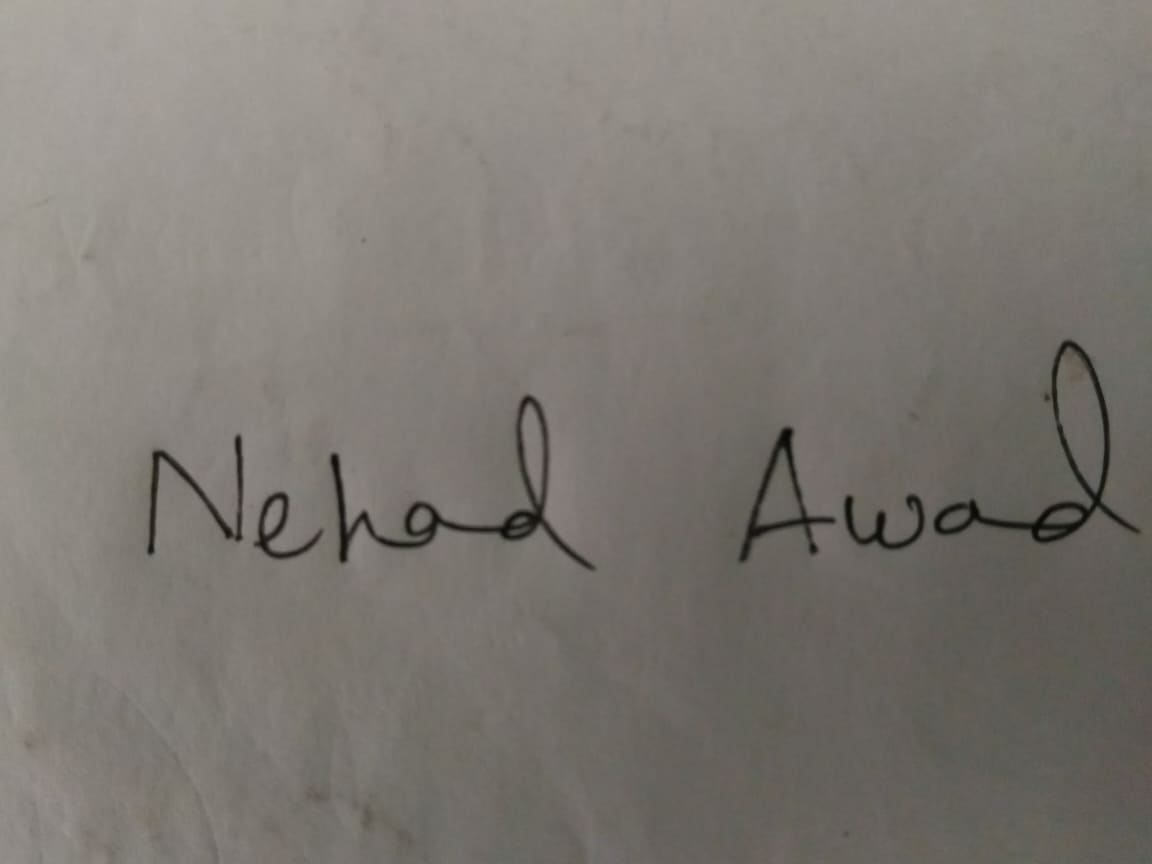 Nehad Awad